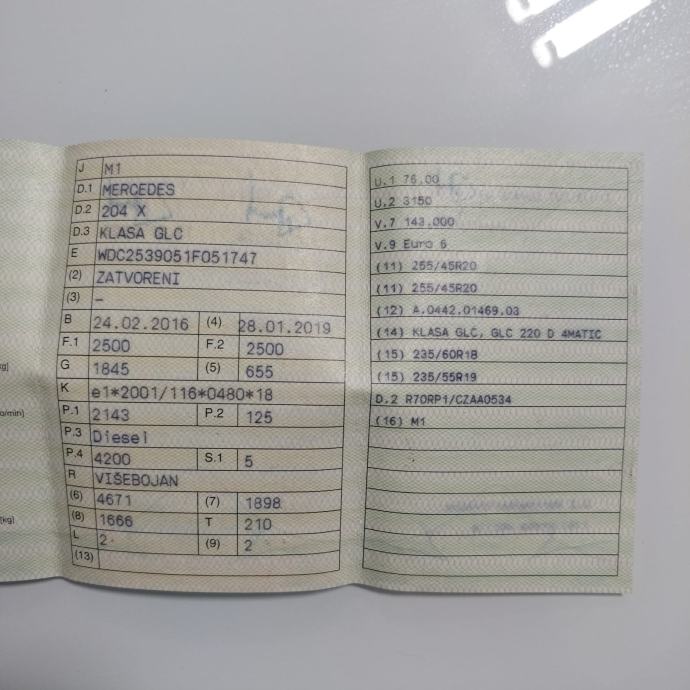 J M1
D.1 MERCEDES
D.2 204 X
D.3 KLASA GLC
E WDC2539051F051747
(2) ZATVORENI
(3) –
B 24.02.2016 (4) 28.01.2019
F.1 2500 F.2 2500
G 1845 (5) 655
K e1*2001/116*0480*18
P.1 2143 P.2 125
P.3 Diesel
P.4 4200 S.1 5
R VIŠEBOJAN
(6) 4671 (7) 1898
(8) 1666 T 210
L 2 (9) 2
(13)
U.1 76.00
U.2 3150
V.7 143.000
V.9 Euro 6
(11) 255/45R20
(11) 255/45R20
(12) A.0442.01469.03
(14) KLASA GLC, GLC 220 D 4MATIC
(15) 235/60R18
(15) 235/55R19
D.2 R70RP1/CZAA0534
(16) M1